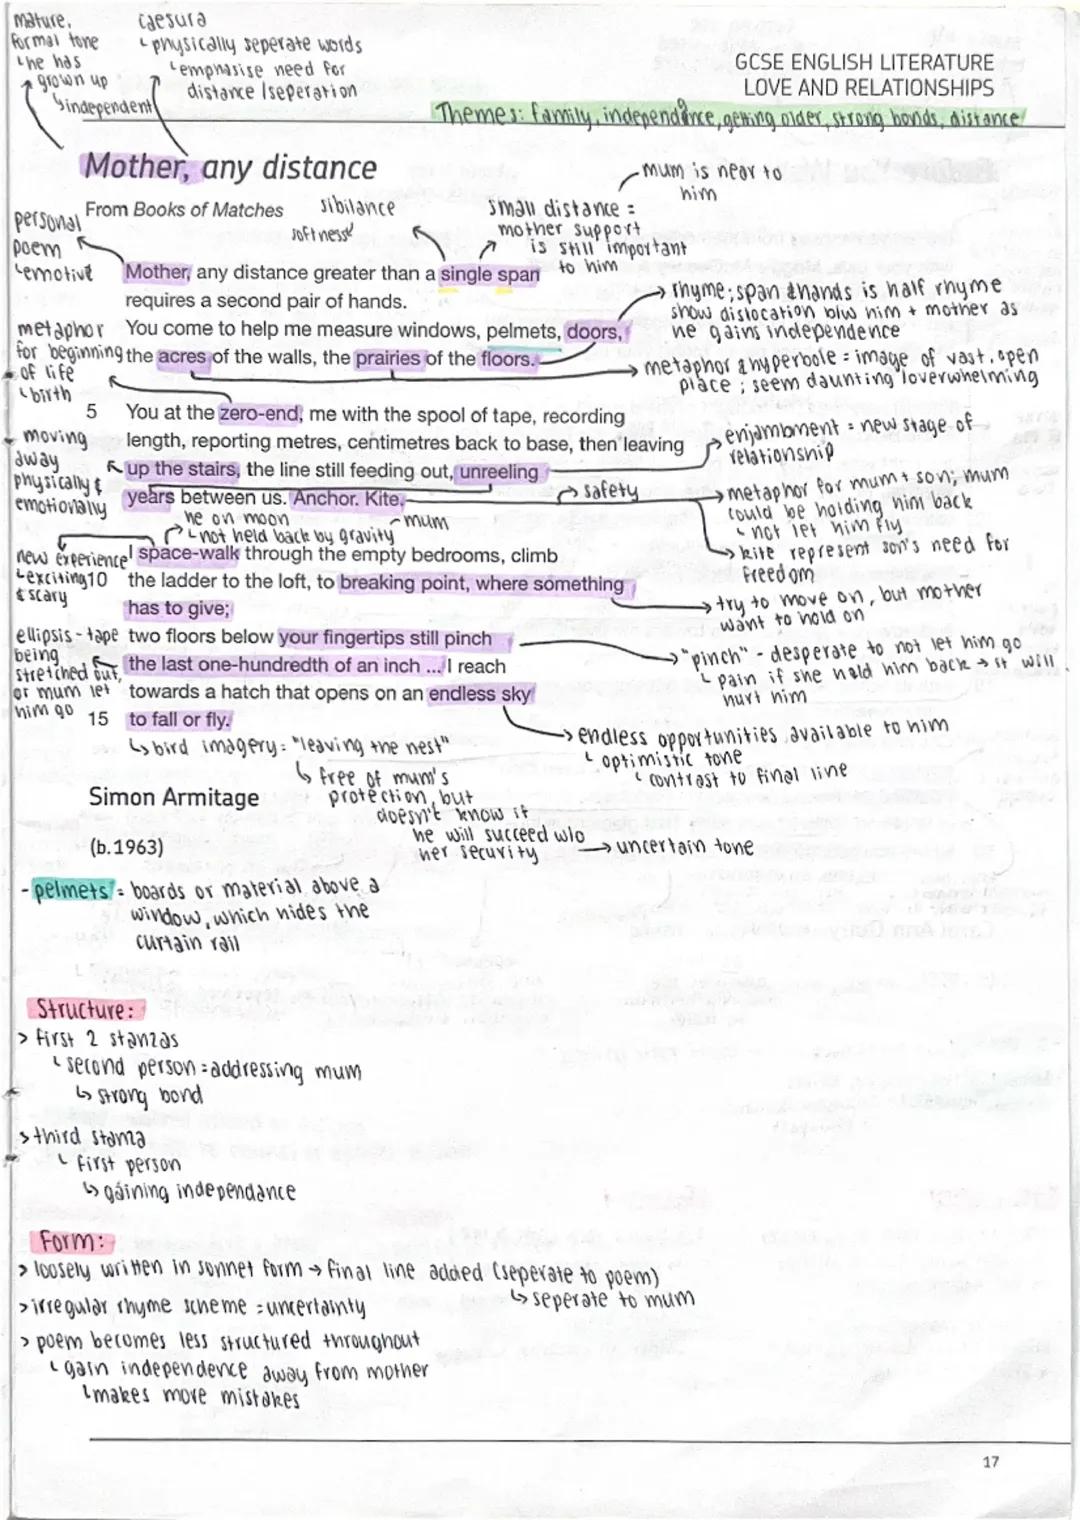 mature,
formal tone
he has
grown up
independent
caesura
physically seperate words
emphasise need for
distance /seperation
GCSE ENGLISH LITERATURE
LOVE AND RELATIONSHIPS
Themes: family, independance, getting older, strong bonds, distance
Mother, any distance
mum is near to
him
From Books of Matches
sibilance
softness
small distance =
mother support
is still important
to him
personal
poem
emotive
Mother, any distance greater than a single span
requires a second pair of hands.
rhyme; span & hands is half rhyme
show dislocation b/w him + mother as
he gains independence
You come to help me measure windows, pelmets, doors,
the acres of the walls, the prairies of the floors.
metaphor
for beginning
of life
birth
metaphor & hyperbole = image of vast, open
place ; seem daunting /overwhelming
5 You at the zero-end, me with the spool of tape, recording
length, reporting metres, centimetres back to base, then leaving
up the stairs, the line still feeding out, unreeling
years between us. Anchor. Kite.
moving
away
physically &
emotionally
enjambment = new stage of
relationship
safety
metaphor for mum + son; mum
could be holding him back
not let him fly
kite represent son's need for
freedom
he on moon
not held back by gravity
mum
new experience
exciting
& scary
I space-walk through the empty bedrooms, climb
10 the ladder to the loft, to breaking point, where something
has to give;
try to move on, but mother
want to hold on
two floors below your fingertips still pinch
the last one-hundredth of an inch ... I reach
towards a hatch that opens on an endless sky
15 to fall or fly.
ellipsis - tape
being
stretched out,
or mum let
him go
"pinch" - desperate to not let him go
pain if she held him back → it will
hurt him
endless opportunities available to him
optimistic tone
contrast to final line
bird imagery = "leaving the nest"
free of mum's
protection, but
doesn't know if
he will succeed w/o
her security → uncertain tone
Simon Armitage
(b.1963)
- pelmets = boards or material above a
window, which hides the
curtain rail
Structure:
> first 2 stanzas
second person = addressing mum
strong bond
> third stanza
first person
gaining independance
Form:
> loosely written in sonnet form → final line added (seperate to poem)
seperate to mum
> irregular rhyme scheme = uncertainty
> poem becomes less structured throughout
gain independence away from mother
makes more mistakes
17